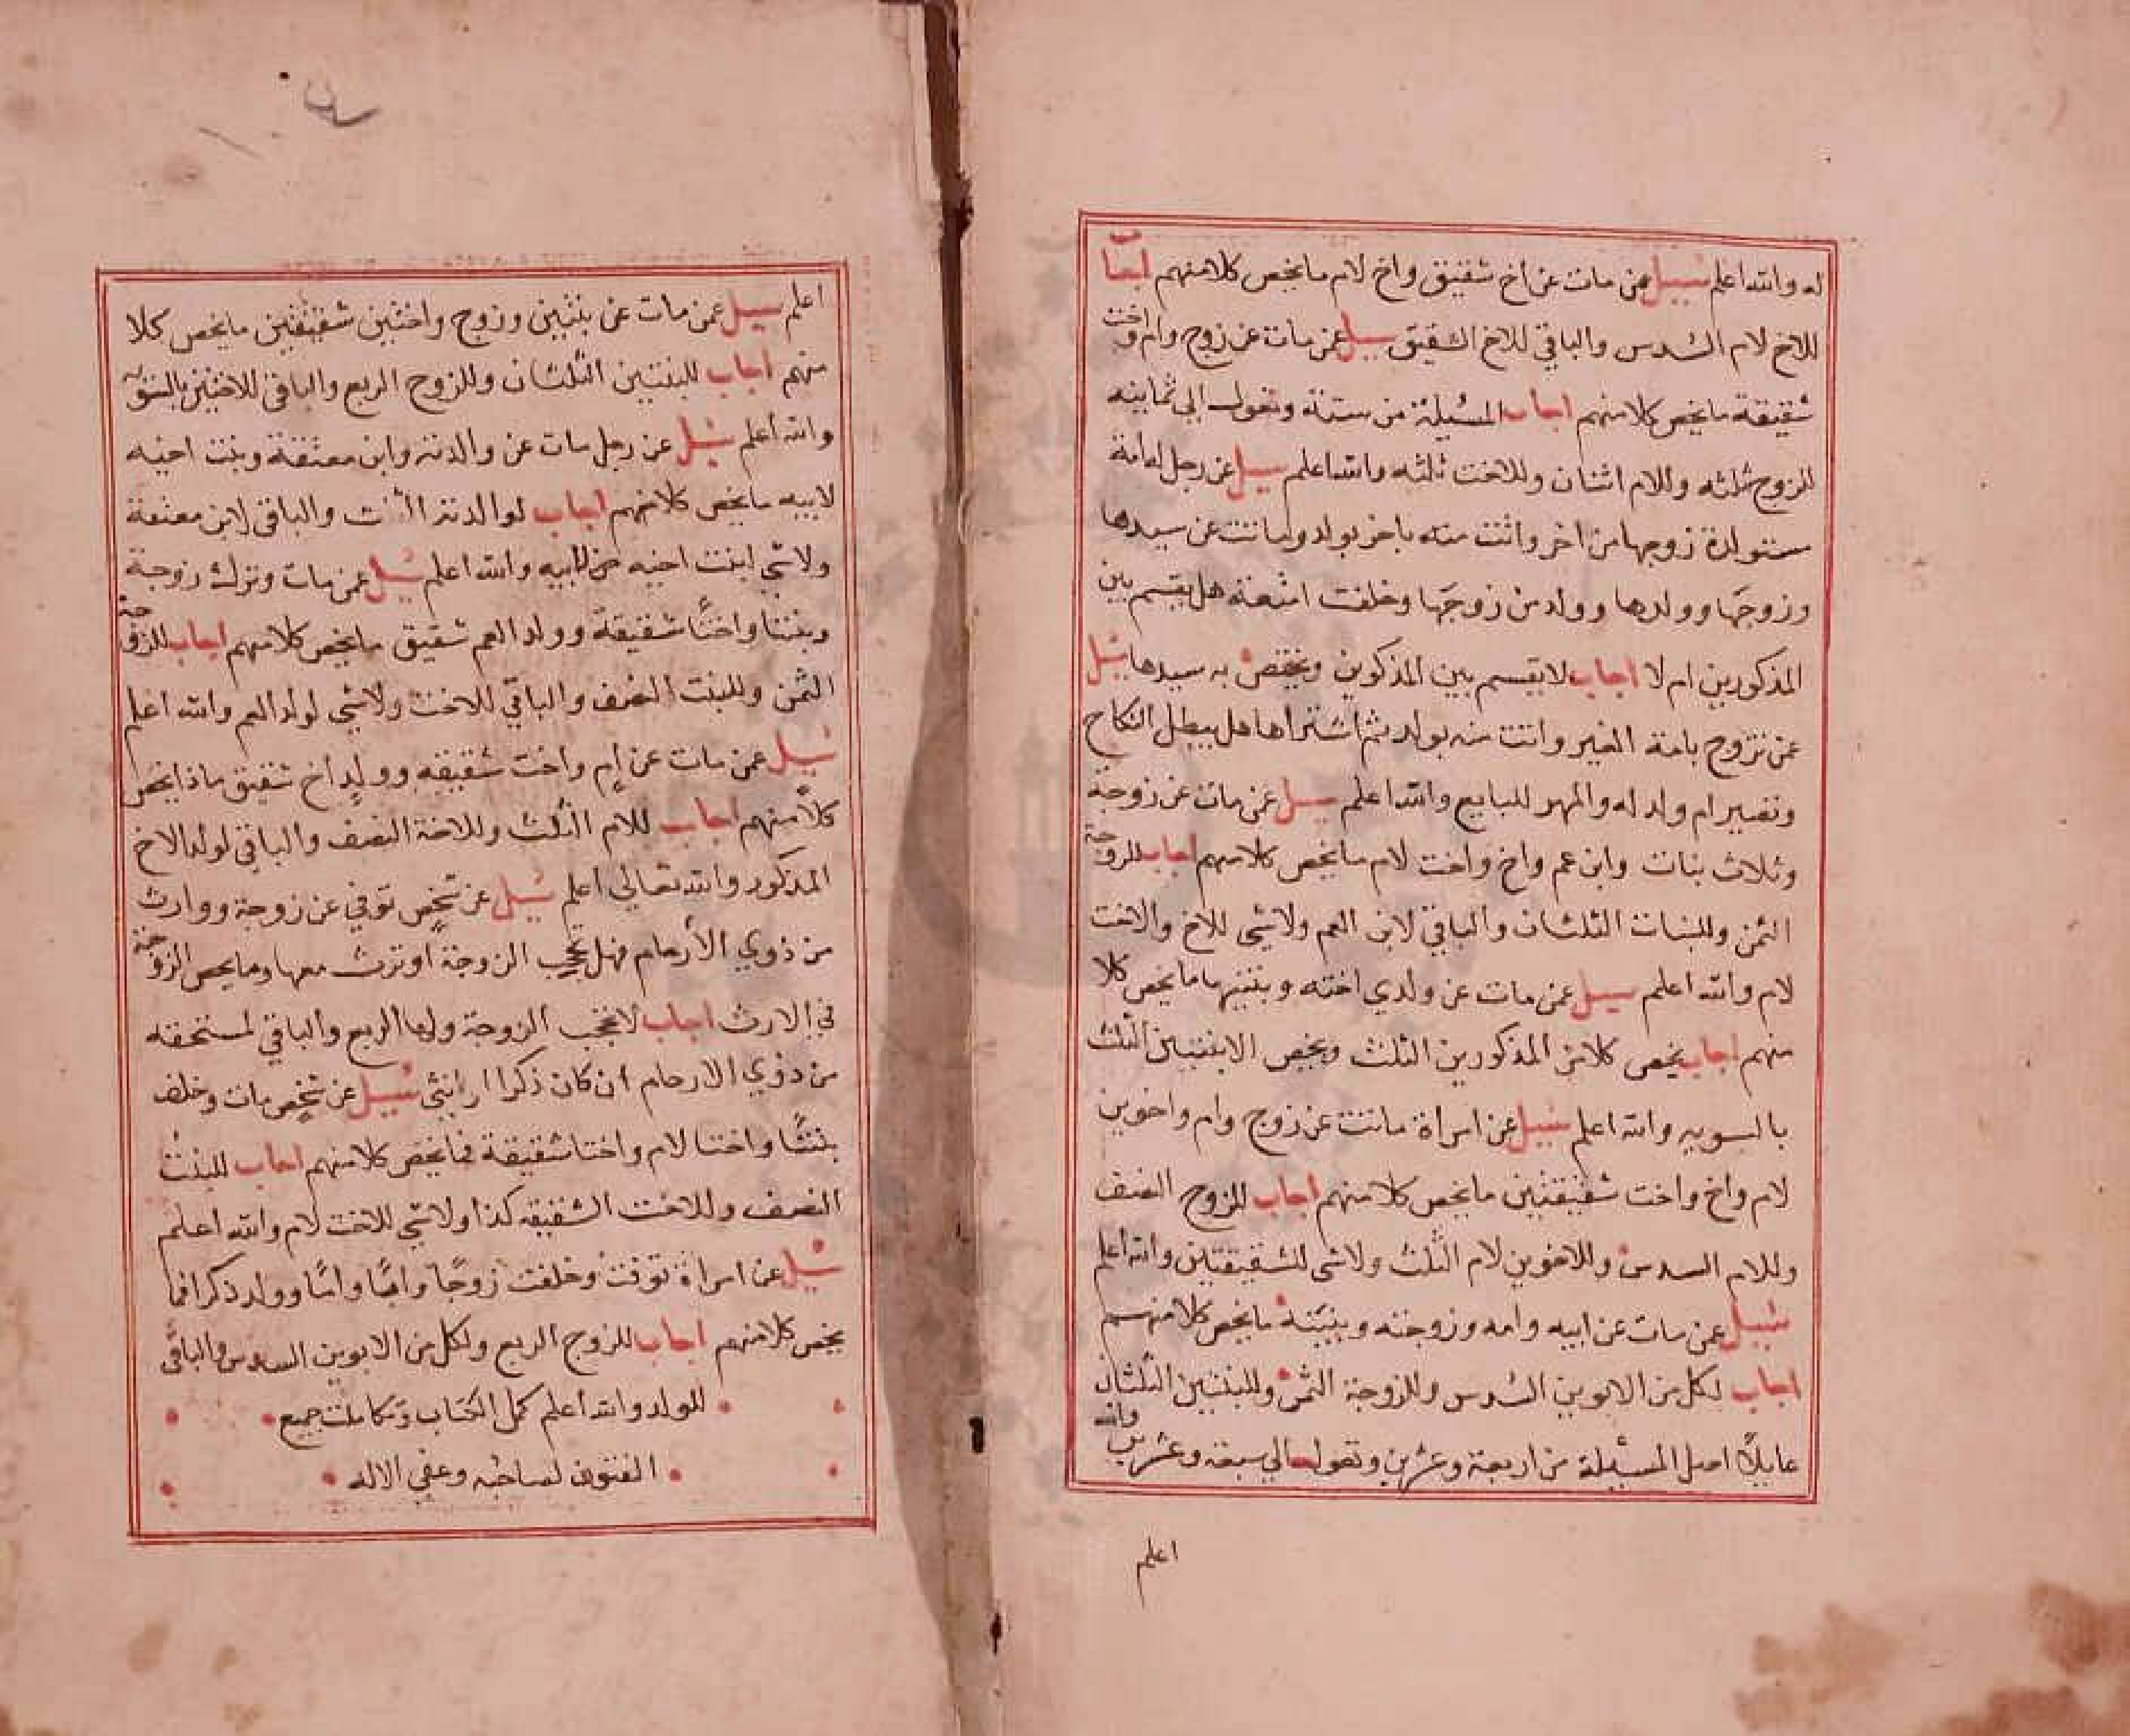 له والله اعلم سيل عمن مات عن أخ شقيق واخ لام ما يخص كلا منهم اجاب
للاخ لام السدس والباقي للاخ الشقيق سيل عمن مات عن زوج وام واخت
شقيقة ما يخص كلا منهم اجاب المسيلة من ستة وتعول الى ثمانيه
للزوج ثلثه وللام اثنان وللاخت ثلثه والله اعلم سيل عن رجل له امة
مستولدة زوجها من اخر واتت منه باخر بولد وماتت عن سيدها
وزوجها وولدها وولد من زوجها وخلفت امتعة هل يقسم بين
المذكورين ام لا اجاب لا يقسم بين المذكوين ويختص به سيدها سيل
عن تزوج بامة الغير واتت منه بولد ثم اشتراها هل يبطل النكاح
وتصير ام ولد له والمهر للبايع والله اعلم سيل عمن مات عن زوجة
وثلاث بنات وابن عم واخ واخت لام ما يخص كلا منهم اجاب للزوجة
الثمن وللبنات الثلثان والباقي لابن العم ولاشي للاخ والاخت
لام والله اعلم سيل عمن مات عن ولدي اخته وبنتيها ما يخص كلا
منهم اجاب يخص كلا من المذكورين الثلث ويخص الابنتين الثلث
بالسويه والله اعلم سيل عن امراة ماتت عن زوج وام واخوين
لام واخ واخت شقيقتين ما يخص كلا منهم اجاب للزوج النصف
وللام السدس وللاخوين لام الثلث ولاشى للشقيقتين والله اعلم
سيل عمن مات عن ابيه وامه وزوجته وبنتيه ما يخص كلا منهم
اجاب لكل من الابوين السدس وللزوجة الثمن وللبنتين الثلثان
عايلا اصل المسيلة من اربعة وعشرين وتعول الي سبعة وعشرين والله
اعلم
اعلم سيل عمن مات عن بنتين وزوج واختين شقيقتين ما يخص كلا
منهم اجاب للبنتين الثلثان وللزوج الربع والباقي للاختين بالسويه
والله أعلم سيل عن رجل مات عن والدته وابن معتقة وبنت اخيه
لابيه ما يخص كلا منهم اجاب لوالدته الثلث والباقي لابن معتقة
ولاشي ابنت اخيه من لابيه والله اعلم سيل عمن مات وترك زوجة
وبنتا واختًا شقيقة وولد العم شقيق ما يخص كلا منهم اجاب للزوجة
الثمن وللبنت النصف والباقي للاخت ولاشي لولد العم والله اعلم
سيل عمن مات عن ام واخت شقيقه وولد اخ شقيق ماذا يخص
كلاً منهم اجاب للام الثلث وللاخة النصف والباقي لولد الاخ
المذكور والله تعالي اعلم سيل عن شخص توفي عن زوجة ووارث
من ذوي الأرحام فهل تحجب الزوجة او ترث معها وما يخص الزوجة
في الارث اجاب لا تحجب الزوجة ولها الربع والباقي لمستحقه
من ذوي الارحام ان كان ذكرا او انثى سيل عن شخص مات وخلف
بنتًا واختا لام واختا شقيقة فما يخص كلا منهم اجاب للبنت
النصف وللاخت الشقيقه كذا ولاشي للاخت لام والله اعلم
سيل عن امراة توفت وخلفت زوجًا وابًا وامًا وولد ذكرا فما
يخص كلا منهم اجاب للزوج الربع ولكل من الابوين السدس والباقي
للولد والله أعلم كمل الكتاب وتكاملت جميع
الفتوى لصاحبه وعفي الاله